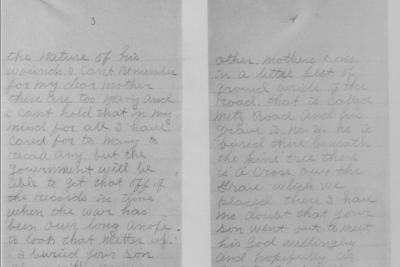 3
the nature of his
wounds I cant remember
for my dear mother
there are too many and
I cant hold that in my
mind for all I have
cared for to many to
recall any. but the
government will be
able to get that off of
the records in time
when the war has
been over long anofe
to look that matter up.
I buried your son
4
other mothers sons
in a little plot of
ground beside of the
Road. that is called
Metz Road and his
grave is No. 2. he is
buried there beneath
the pine tree there
is a cross over the
grave which we
placed there I have
no doubt that your
son went out to meet
his God willingly
and hopefully as